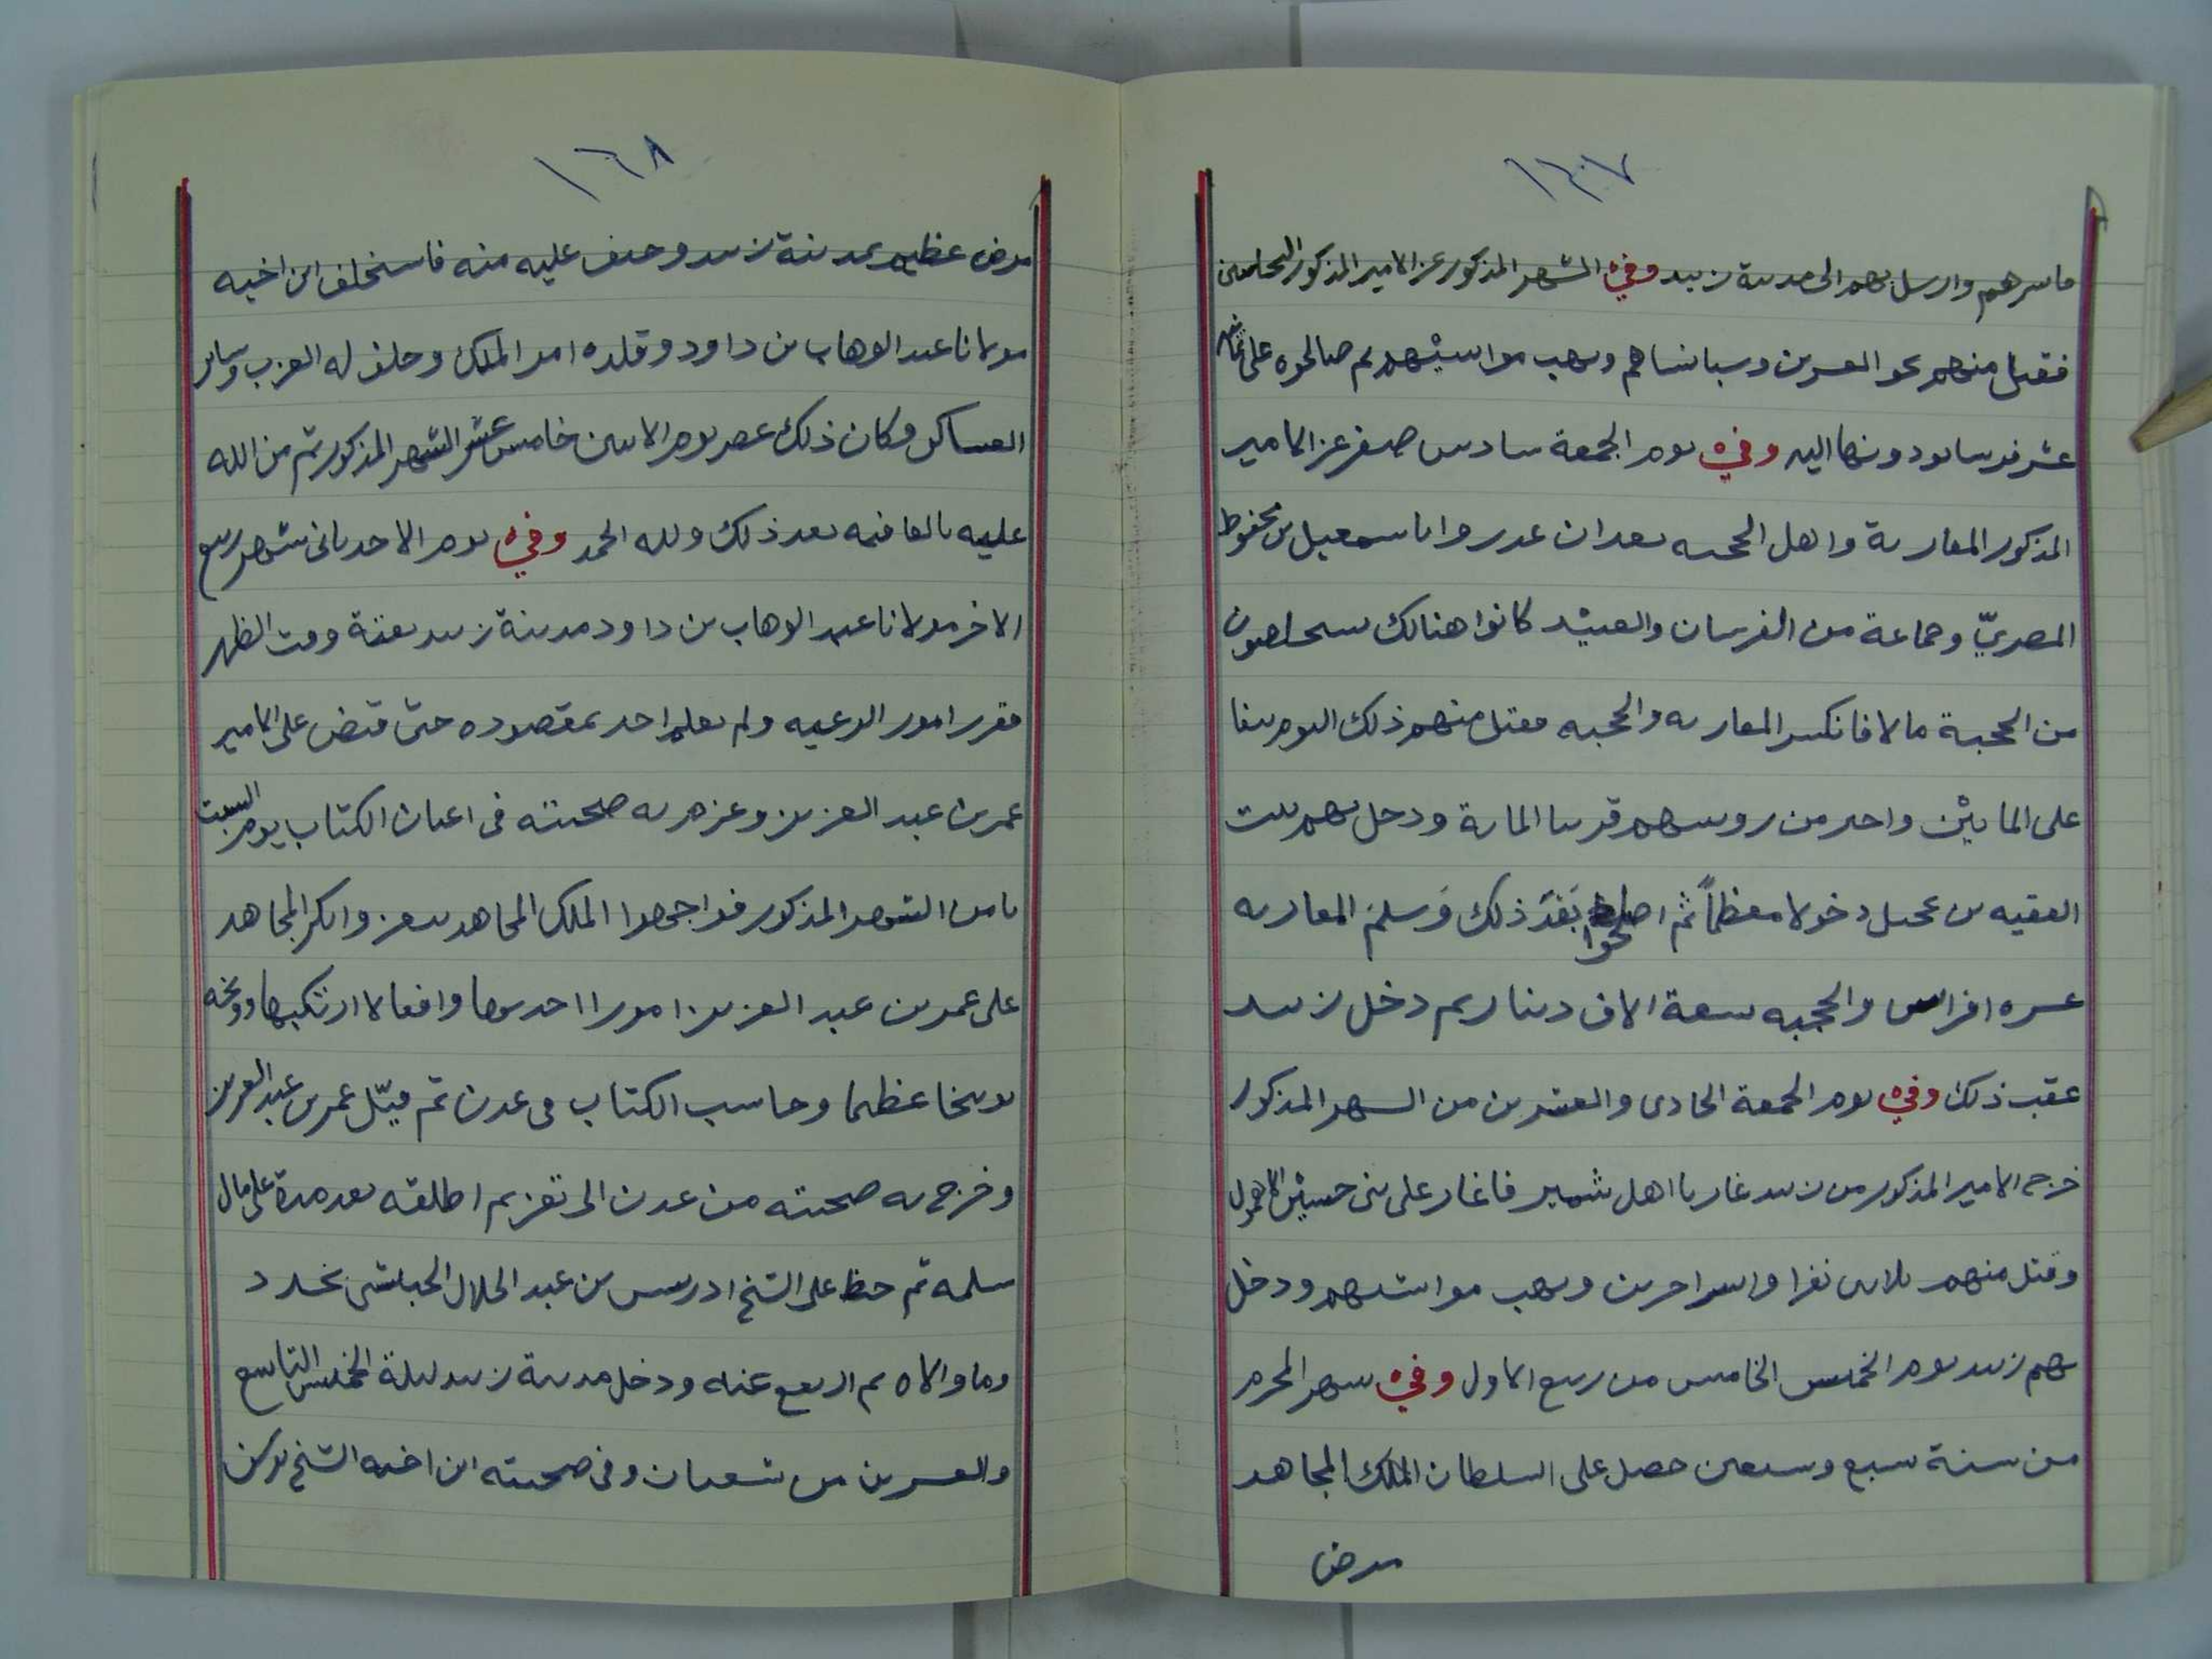 ١٦٧
فاسرهم وارسل بهم الى مدينة زبيد وفي الشهر المذكور غزا الامير المذكور
فقتل منهم نحو العشرين وسبا نساهم ونهب مواشيهم ثم صالحوه على
عشر فرسا يودونها اليه وفي يوم الجمعة سادس صفر غزا الامير
المذكور المعازبة واهل الحجبه بعد ان غدروا باسمعيل بن محفوظ
المصريّ وجماعة من الفرسان والعبيد كانوا هنالك يستخلصون
من الحجبة مالا فانكسر المعازبه والحجبه فقتل منهم ذلك اليوم نيفا
على المايتين واحتز من روسهم قريبا المائة ودخل بهم بيت
الفقيه بن عجيل دخولا معظماً ثم اصطلحوا بَعْدَ ذلك وَسلم المعازبه
عشره افراس والحجبه سبعة الاف دينار ثم دخل زبيد
عقب ذلك وفي يوم الجمعة الحادى والعشرين من الشهر المذكور
خرج الامير المذكور من زبيد غازيا اهل شمير فاغار على بنى حسين
وقتل منهم ثلاثين نفرا واسر اخرين ونهب مواشيهم ودخل
بهم زبيد يوم الخميس الخامس من ربيع الاول وفي شهر المحرم
من سنة سبع وسبعين حصل على السلطان الملك المجاهد
مرض
١٦٨
مرض عظيم بمدينة زبيد وخيف عليه منه فاستخلف ابن اخيه
مولانا عبد الوهاب بن داود وقلده امر الملك وحلف له العرب وساير
العساكر وكان ذلك عصر يوم الاثنين خامس عشر الشهر المذكور ثم من الله
عليه بالعافيه بعد ذلك ولله الحمد وفي يوم الاحد ثانى شهر ربيع
الاخر مولانا عبد الوهاب بن داود مدينة زبيد بغتة وقت الظهر
فقرر امور الرعيه ولم يعلم احد بمقصوده حتى قبض على الامير
عمر بن عبد العزيز وعزم به صحبته فى اعيان الكتاب يوم السبت
ثامن الشهر المذكور فواجهوا الملك المجاهد بتعز وانكر المجاهد
على عمر بن عبد العزيز امورا احدثوها وافعالا ارتكبها ووبخه
توبيخا عظيما وحاسب الكتاب فى عدن ثم قيّد عمر بن عبد العزيز
وخرج به صحبته من عدن الى تعز ثم اطلقه بعد مدة على مال
سلمه ثم حط على الشيخ ادريس بن عبد الجلال الحباشى بخدد
وما والاه ثم ارتفع عنه ودخل مدينة زبيد ليلة الخميس التاسع
والعشرين من شعبان وفى صحبته ابن اخيه الشيخ